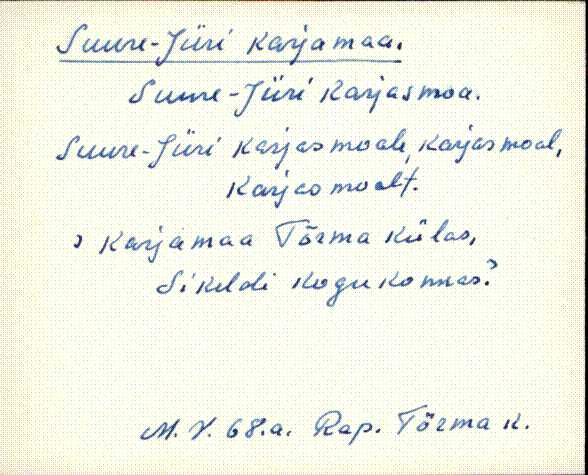 Suure-Jüri karjamaa.
Suure-Jüri karjasmoa.
Suure-Jüri karjasmoale, karjasmoal,
karjasmoalt.
karjamaa Tõrma külas,
Sikeldi kogukonnas?
M. V. 68.a. Rap. Tõrma k.